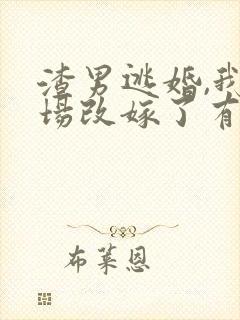 渣男逃婚,我
场改嫁了有
布莱恩